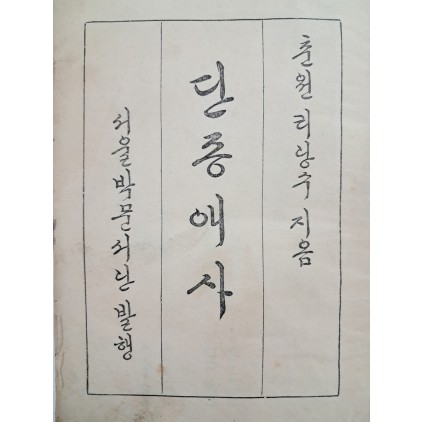 춘원 리광수 지음
단종애사
서울 박문서관 발행